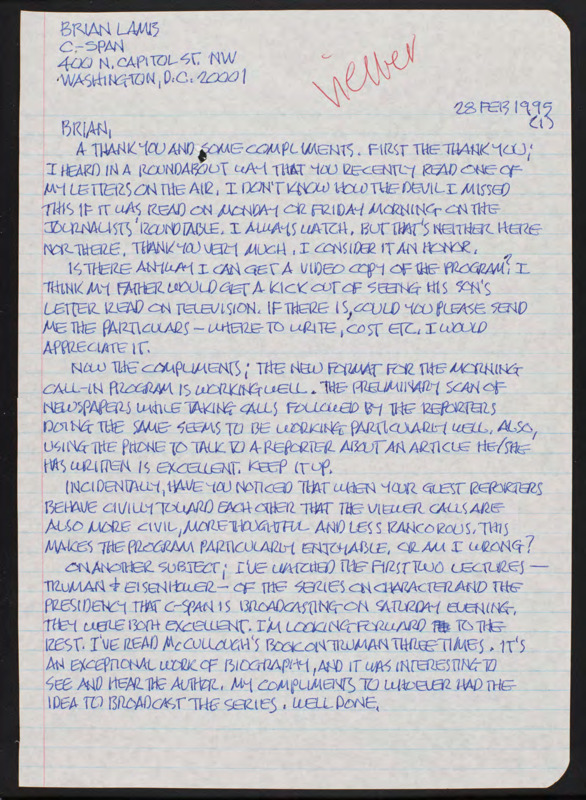 BRIAN LAMB
C-SPAN
400 N. CAPITOL ST. NW
WASHINGTON, D.C. 20001
viewer
28 FEB 1995
(1)
BRIAN,
A THANK YOU AND SOME COMPLIMENTS. FIRST THE THANK YOU;
I HEARD IN A ROUNDABOUT WAY THAT YOU RECENTLY READ ONE OF
MY LETTERS ON THE AIR. I DON'T KNOW HOW THE DEVIL I MISSED
THIS IF IT WAS READ ON MONDAY OR FRIDAY MORNING ON THE
JOURNALISTS' ROUNDTABLE. I ALWAYS WATCH. BUT THAT'S NEITHER HERE
NOR THERE. THANK YOU VERY MUCH. I CONSIDER IT AN HONOR.
IS THERE ANYWAY I CAN GET A VIDEO COPY OF THE PROGRAM? I
THINK MY FATHER WOULD GET A KICK OUT OF SEEING HIS SON'S
LETTER READ ON TELEVISION. IF THERE IS, COULD YOU PLEASE SEND
ME THE PARTICULARS - WHERE TO WRITE, COST ETC. I WOULD
APPRECIATE IT.
NOW THE COMPLIMENTS; THE NEW FORMAT FOR THE MORNING
CALL-IN PROGRAM IS WORKING WELL. THE PRELIMINARY SCAN OF
NEWSPAPERS WHILE TAKING CALLS FOLLOWED BY THE REPORTERS
DOING THE SAME SEEMS TO BE WORKING PARTICULARLY WELL. ALSO,
USING THE PHONE TO TALK TO A REPORTER ABOUT AN ARTICLE HE/SHE
HAS WRITTEN IS EXCELLENT. KEEP IT UP.
INCIDENTALLY, HAVE YOU NOTICED THAT WHEN YOUR GUEST REPORTERS
BEHAVE CIVILLY TOWARD EACH OTHER THAT THE VIEWER CALLS ARE
ALSO MORE CIVIL, MORE THOUGHTFUL AND LESS RANCOROUS. THIS
MAKES THE PROGRAM PARTICULARLY ENJOYABLE. OR AM I WRONG?
ON ANOTHER SUBJECT; I'VE WATCHED THE FIRST TWO LECTURES —
TRUMAN + EISENHOWER - OF THE SERIES ON CHARACTER AND THE
PRESIDENCY THAT C-SPAN IS BROADCASTING ON SATURDAY EVENING.
THEY WERE BOTH EXCELLENT. I'M LOOKING FORWARD TO THE
REST. I'VE READ McCULLOUGH'S BOOK ON TRUMAN THREE TIMES. IT'S
AN EXCEPTIONAL WORK OF BIOGRAPHY, AND IT WAS INTERESTING TO
SEE AND HEAR THE AUTHOR. MY COMPLIMENTS TO WHOEVER HAD THE
IDEA TO BROADCAST THE SERIES. WELL DONE.